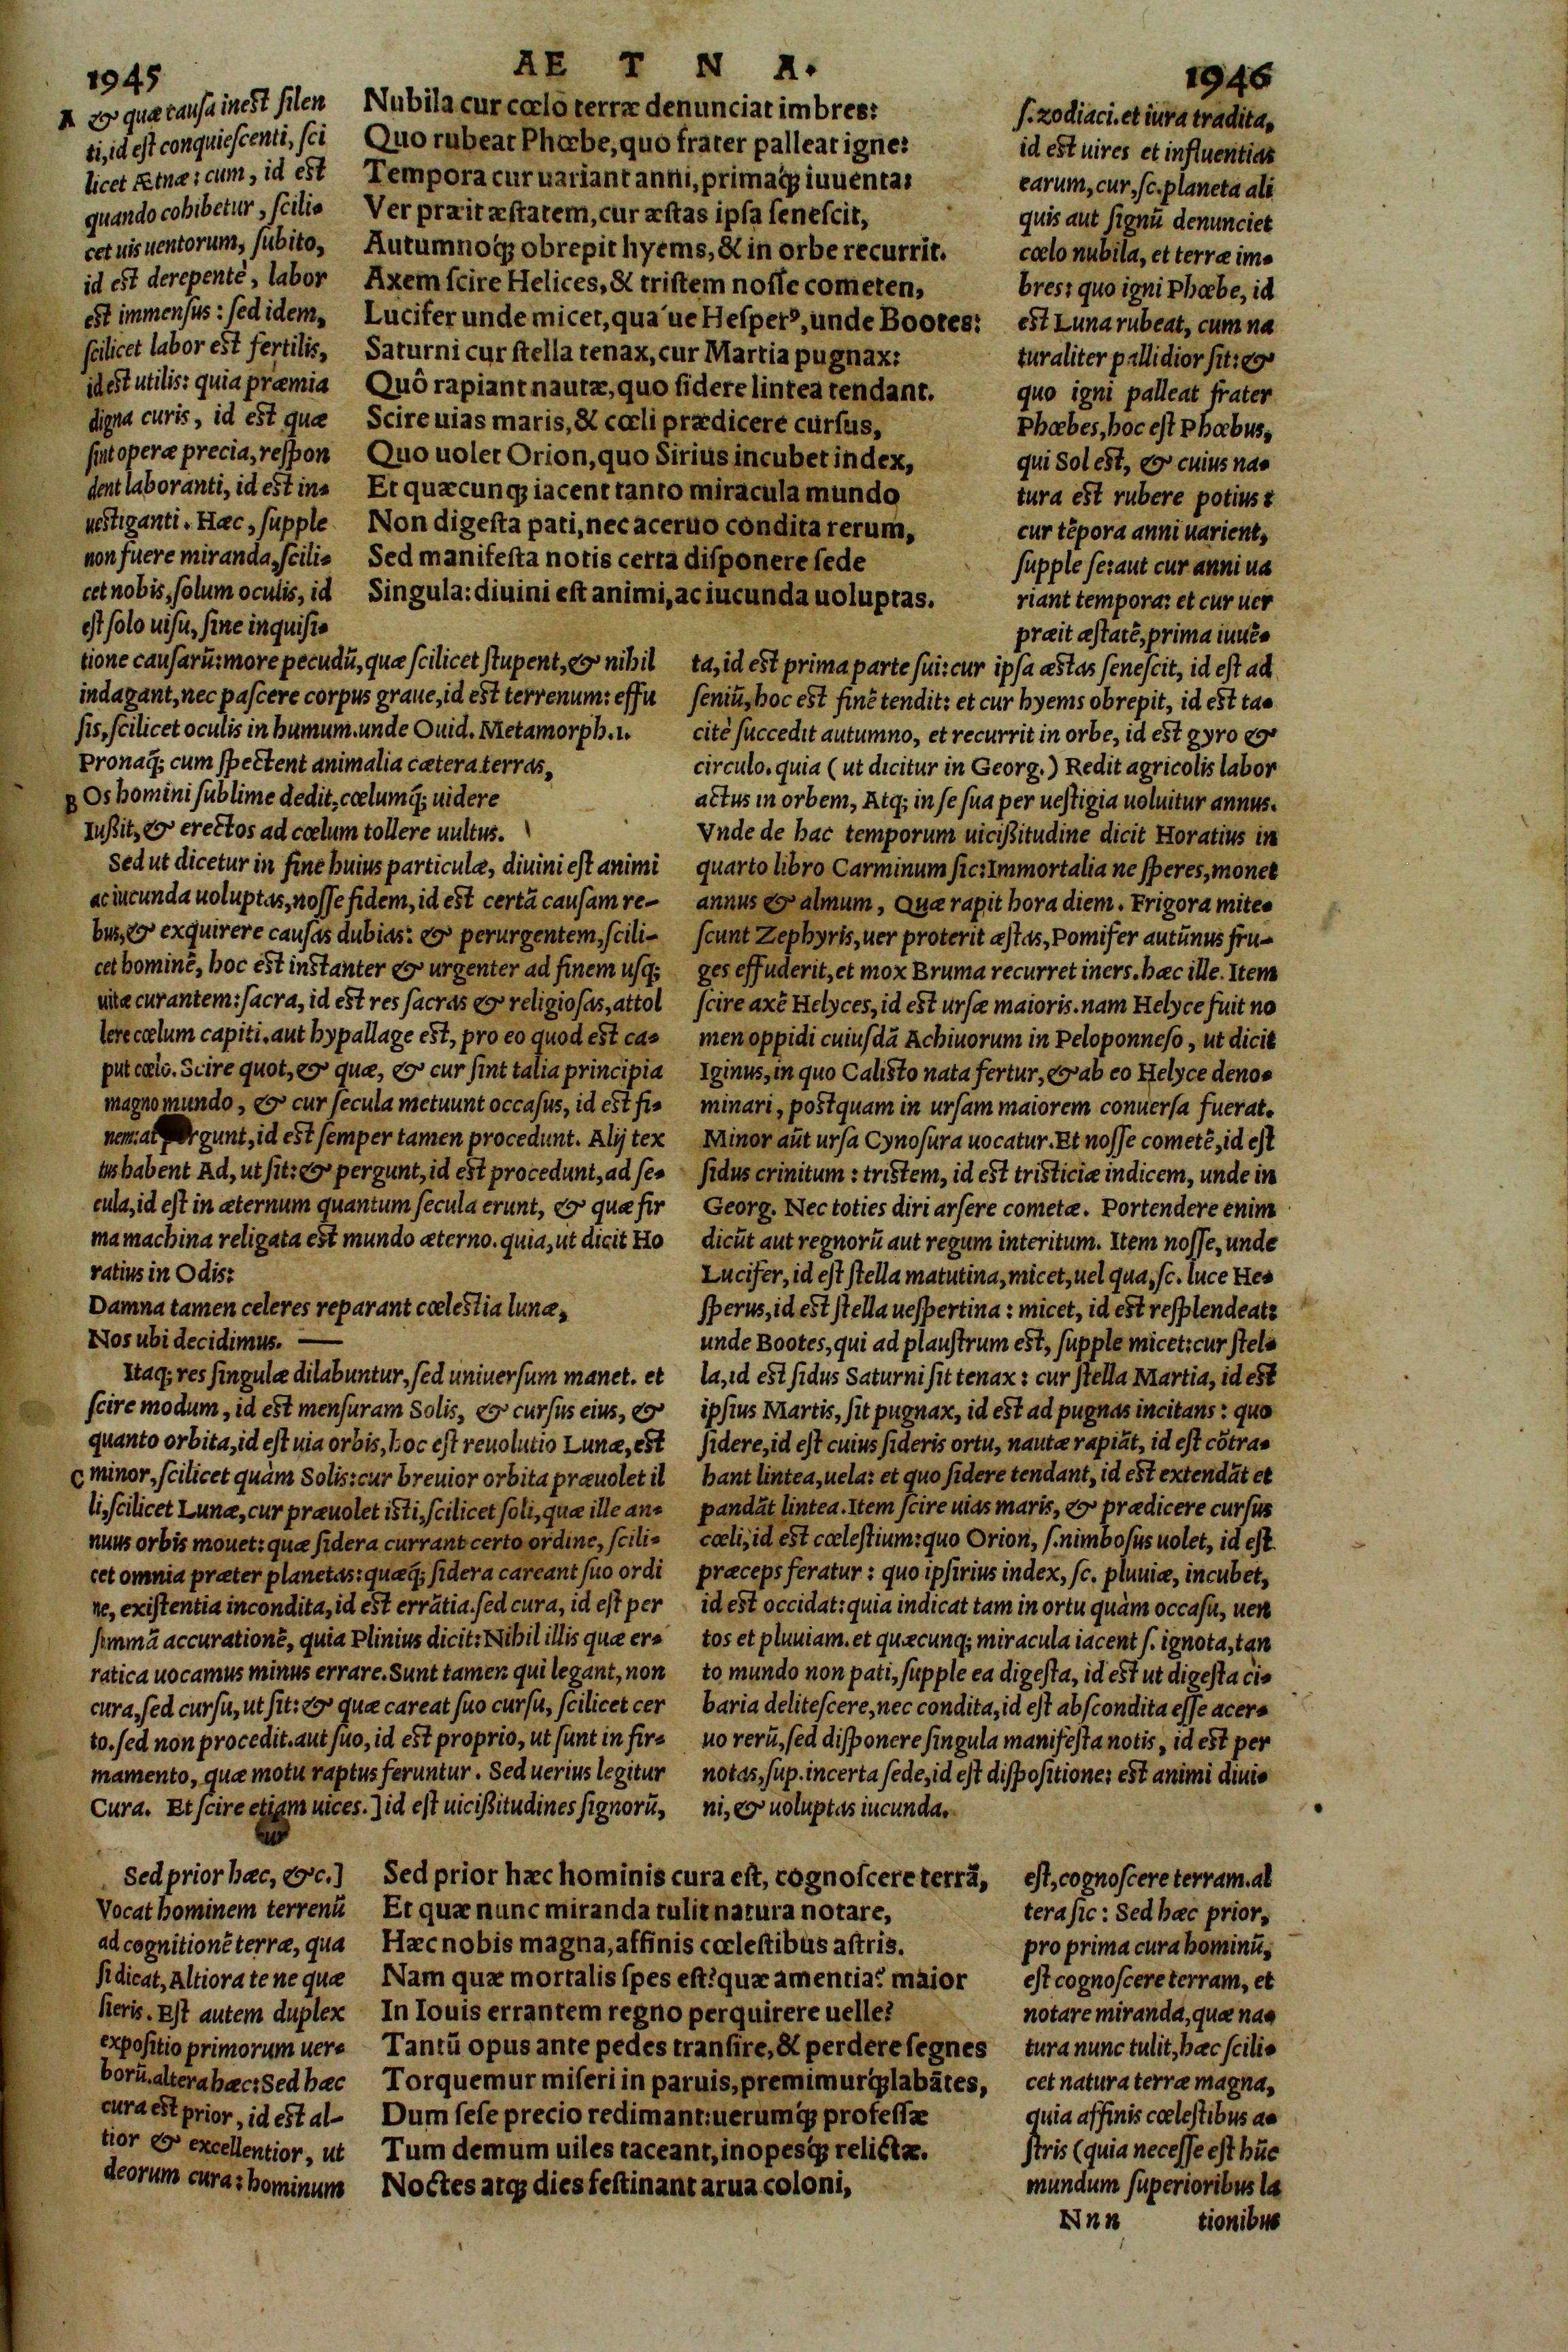 1945
AE T N A.
1946
Nubila cur cœlo terræ denunciat imbres:
Quo rubeat Phœbe, quo frater palleat igne:
Tempora cur uariant anni, primaq́; iuuenta:
Ver præit æstatem, cur æstas ipsa senescit,
Autumnoq́; obrepit hyems, & in orbe recurrit.
Axem scire Helices, & tristem nosse cometen,
Lucifer unde micet, qua´ue Hesperꝰ, unde Bootes:
Saturni cur stella tenax, cur Martia pugnax:
Quô rapiant nautæ, quo sidere lintea tendant.
Scire uias maris, & cœli prædicere cursus,
Quo uolet Orion, quo Sirius incubet index,
Et quæcunq; iacent tanto miracula mundo
Non digesta pati, nec aceruo condita rerum,
Sed manifesta notis certa disponere sede
Singula: diuini est animi, ac iucunda uoluptas.
A & quæ causa inest silen
ti, id est conquiescenti, sci
licet Ætnæ: cum, id est
quando cohibetur, scili-
cet uis uentorum, subito,
id est derepentè, labor
est immensus: sed idem,
scilicet labor est fertilis,
id est utilis: quia præmia
digna curis, id est quæ
sint operæ precia, respon
dent laboranti, id est in-
uestiganti. Hæc, supple
non fuere miranda, scili-
cet nobis, solum oculis, id
est solo uisu, sine inquisi-
tione causarũ: more pecudũ, quæ scilicet stupent, & nihil
indagant, nec pascere corpus graue, id est terrenum: effu
sis, scilicet oculis in humum. unde Ouid. Metamorph. 1.
Pronaq́; cum spectent animalia cætera terras,
B Os homini sublime dedit, cœlumq́; uidere
Iußit, & erectos ad cœlum tollere uultus.
Sed ut dicetur in fine huius particulæ, diuini est animi
ac iucunda uoluptas, nosse fidem, id est certã causam re-
bus, & exquirere causas dubias: & perurgentem, scili-
cet hominẽ, hoc est instanter & urgenter ad finem usq;
uitæ curantem: sacra, id est res sacras & religiosas, attol
lere cœlum capiti. aut hypallage est, pro eo quod est ca-
put cœlo. Scire quot, & quæ, & cur sint talia principia
magno mundo, & cur secula metuunt occasus, id est fi-
nem: at pergunt, id est semper tamen procedunt. Alij tex
tus habent Ad, ut sit: & pergunt, id est procedunt, ad se-
cula, id est in æternum quantum secula erunt, & quæ fir
ma machina religata est mundo æterno. quia, ut dicit Ho
ratius in Odis:
Damna tamen celeres reparant cœlestia lunæ,
Nos ubi decidimus. —
Itaq; res singulæ dilabuntur, sed uniuersum manet. et
scire modum, id est mensuram Solis, & cursus eius, &
quanto orbita, id est uia orbis, hoc est reuolutio Lunæ, est
C minor, scilicet quàm Solis: cur breuior orbita præuolet il
li, scilicet Lunæ, cur præuolet isti, scilicet soli, quæ ille an-
nuus orbis mouet: quæ sidera currant certo ordine, scili-
cet omnia præter planetas: quæq́; sidera careant suo ordi
ne, existentia incondita, id est errãtia. sed cura, id est per
summã accurationẽ, quia Plinius dicit: Nihil illis quæ er-
ratica uocamus minus errare. Sunt tamen qui legant, non
cura, sed cursu, ut sit: & quæ careat suo cursu, scilicet cer
to. sed non procedit. aut suo, id est proprio, ut sunt in fir-
mamento, quæ motu raptus feruntur. Sed uerius legitur
Cura. Et scire etiam uices.] id est uicißitudines signorũ,
s. zodiaci. et iura tradita,
id est uires et influentias
earum, cur, sc. planeta ali
quis aut signũ denunciet
cœlo nubila, et terræ im-
bres: quo igni Phœbe, id
est Luna rubeat, cum na
turaliter pallidior sit: &
quo igni palleat frater
Phœbes, hoc est Phœbus,
qui Sol est, & cuius na-
tura est rubere potius:
cur tẽpora anni uarient,
supple se: aut cur anni ua
riant tempora: et cur uer
præit æstatẽ, prima iuuẽ-
ta, id est prima parte sui: cur ipsa æstas senescit, id est ad
seniũ, hoc est finẽ tendit: et cur hyems obrepit, id est ta-
citè succedit autumno, et recurrit in orbe, id est gyro &
circulo. quia (ut dicitur in Georg.) Redit agricolis labor
actus in orbem, Atq; in se sua per uestigia uoluitur annus.
Vnde de hac temporum uicißitudine dicit Horatius in
quarto libro Carminum sic: Immortalia ne speres, monet
annus & almum, Quæ rapit hora diem. Frigora mite-
scunt Zephyris, uer proterit æstas, Pomifer autũnus fru-
ges effuderit, et mox Bruma recurret iners. hæc ille. Item
scire axẽ Helyces, id est ursæ maioris. nam Helyce fuit no
men oppidi cuiusdã Achiuorum in Peloponneso, ut dicit
Iginus, in quo Calisto nata fertur, & ab eo Helyce deno-
minari, postquam in ursam maiorem conuersa fuerat.
Minor aũt ursa Cynosura uocatur. Et nosse cometẽ, id est
sidus crinitum: tristem, id est tristiciæ indicem, unde in
Georg. Nec toties diri arsere cometæ. Portendere enim
dicũt aut regnorũ aut regum interitum. Item nosse, unde
Lucifer, id est stella matutina, micet, uel qua, sc. luce He-
sperus, id est stella uespertina: micet, id est resplendeat:
unde Bootes, qui ad plaustrum est, supple micet: cur stel-
la, id est sidus Saturni sit tenax: cur stella Martia, id est
ipsius Martis, sit pugnax, id est ad pugnas incitans: quo
sidere, id est cuius sideris ortu, nautæ rapiãt, id est cõtra-
hant lintea, uela: et quo sidere tendant, id est extendãt et
pandãt lintea. Item scire uias maris, & prædicere cursus
cœli, id est cœlestium: quo Orion, s. nimbosus uolet, id est
præceps feratur: quo ipsirius index, sc. pluuiæ, incubet,
id est occidat: quia indicat tam in ortu quàm occasu, uen
tos et pluuiam. et quæcunq; miracula iacent s. ignota, tan
to mundo non pati, supple ea digesta, id est ut digesta ci-
baria delitescere, nec condita, id est abscondita esse acer-
uo rerũ, sed disponere singula manifesta notis, id est per
notas, sup. incerta sede, id est dispositione: est animi diui-
ni, & uoluptas iucunda.
Sed prior hæc hominis cura est, cognoscere terrã,
Et quæ nunc miranda tulit natura notare,
Hæc nobis magna, affinis cœlestibus astris.
Nam quæ mortalis spes est? quæ amentia? maior
In Iouis errantem regno perquirere uelle?
Tantũ opus ante pedes transire, & perdere segnes
Torquemur miseri in paruis, premimurq́; labãtes,
Dum sese precio redimant: uerumq́; professæ
Tum demum uiles taceant, inopesq́; relictæ.
Noctes atq; dies festinant arua coloni,
Sed prior hæc, &c.]
Vocat hominem terrenũ
ad cognitionẽ terræ, qua
si dicat, Altiora te ne quæ
sieris. Est autem duplex
expositio primorum uer-
borũ. altera hæc: Sed hæc
cura est prior, id est al-
tior & excellentior, ut
deorum cura: hominum
est, cognoscere terram. al
tera sic: Sed hæc prior,
pro prima cura hominũ,
est cognoscere terram, et
notare miranda, quæ na-
tura nunc tulit, hæc scili-
cet natura terræ magna,
quia affinis cœlestibus a-
stris (quia necesse est hũc
mundum superioribus la
Nnn tionibus